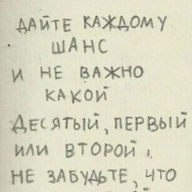 ДАЙТЕ КАЖДОМУ
ШАНС
И НЕ ВАЖНО
КАКОЙ
ДЕСЯТЫЙ, ПЕРВЫЙ
ИЛИ ВТОРОЙ,
НЕ ЗАБУДЬТЕ, ЧТО